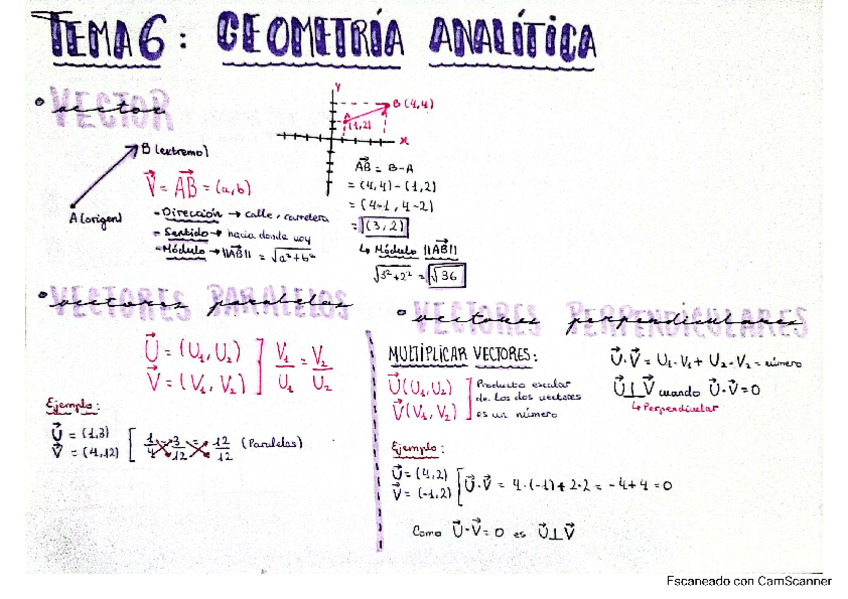 TEMA 6: GEOMETRÍA ANALÍTICA
• VECTOR
vector
Y
B (4,4)
A
(1,2)
X
B (extremo)
A (origen)
V⃗ = AB⃗ = (a,b)
- Dirección → calle, carretera
- Sentido → hacia donde voy
- Módulo → ||AB⃗|| = √a²+b²
AB⃗ = B-A
= (4,4)-(1,2)
= (4-1, 4-2)
= (3,2)
↳ Módulo ||AB⃗||
√3²+2² = √36
• VECTORES PARALELOS
vectores paralelos
U⃗ = (U₁, U₂)
V⃗ = (V₁, V₂)
V₁/U₁ = V₂/U₂
Ejemplo:
U⃗ = (1,3)
V⃗ = (4,12)
1/4 = 3/12 = 12/12 (Paralelas)
• VECTORES PERPENDICULARES
vectores perpendiculares
MULTIPLICAR VECTORES:
U⃗(U₁,U₂)
V⃗(V₁,V₂)
Producto escalar
de los dos vectores
es un número
U⃗·V⃗ = U₁·V₁ + U₂·V₂ = número
U⃗⊥V⃗ cuando U⃗·V⃗=0
↳ Perpendicular
Ejemplo:
U⃗ = (4,2)
V⃗ = (-1,2)
U⃗·V⃗ = 4·(-1)+2·2 = -4+4=0
Como U⃗·V⃗=0 es U⃗⊥V⃗
Escaneado con CamScanner